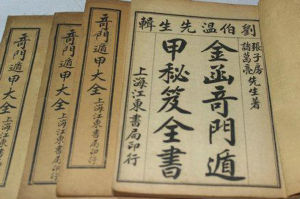 劉伯温先生輯
張子房
諸葛亮
先生著
金函奇門遁
甲秘笈全書
上海江東書局印行
奇門遁甲大全
上海江東書局印行
奇門遁甲大全
上海江東書局印行
奇門遁甲大全